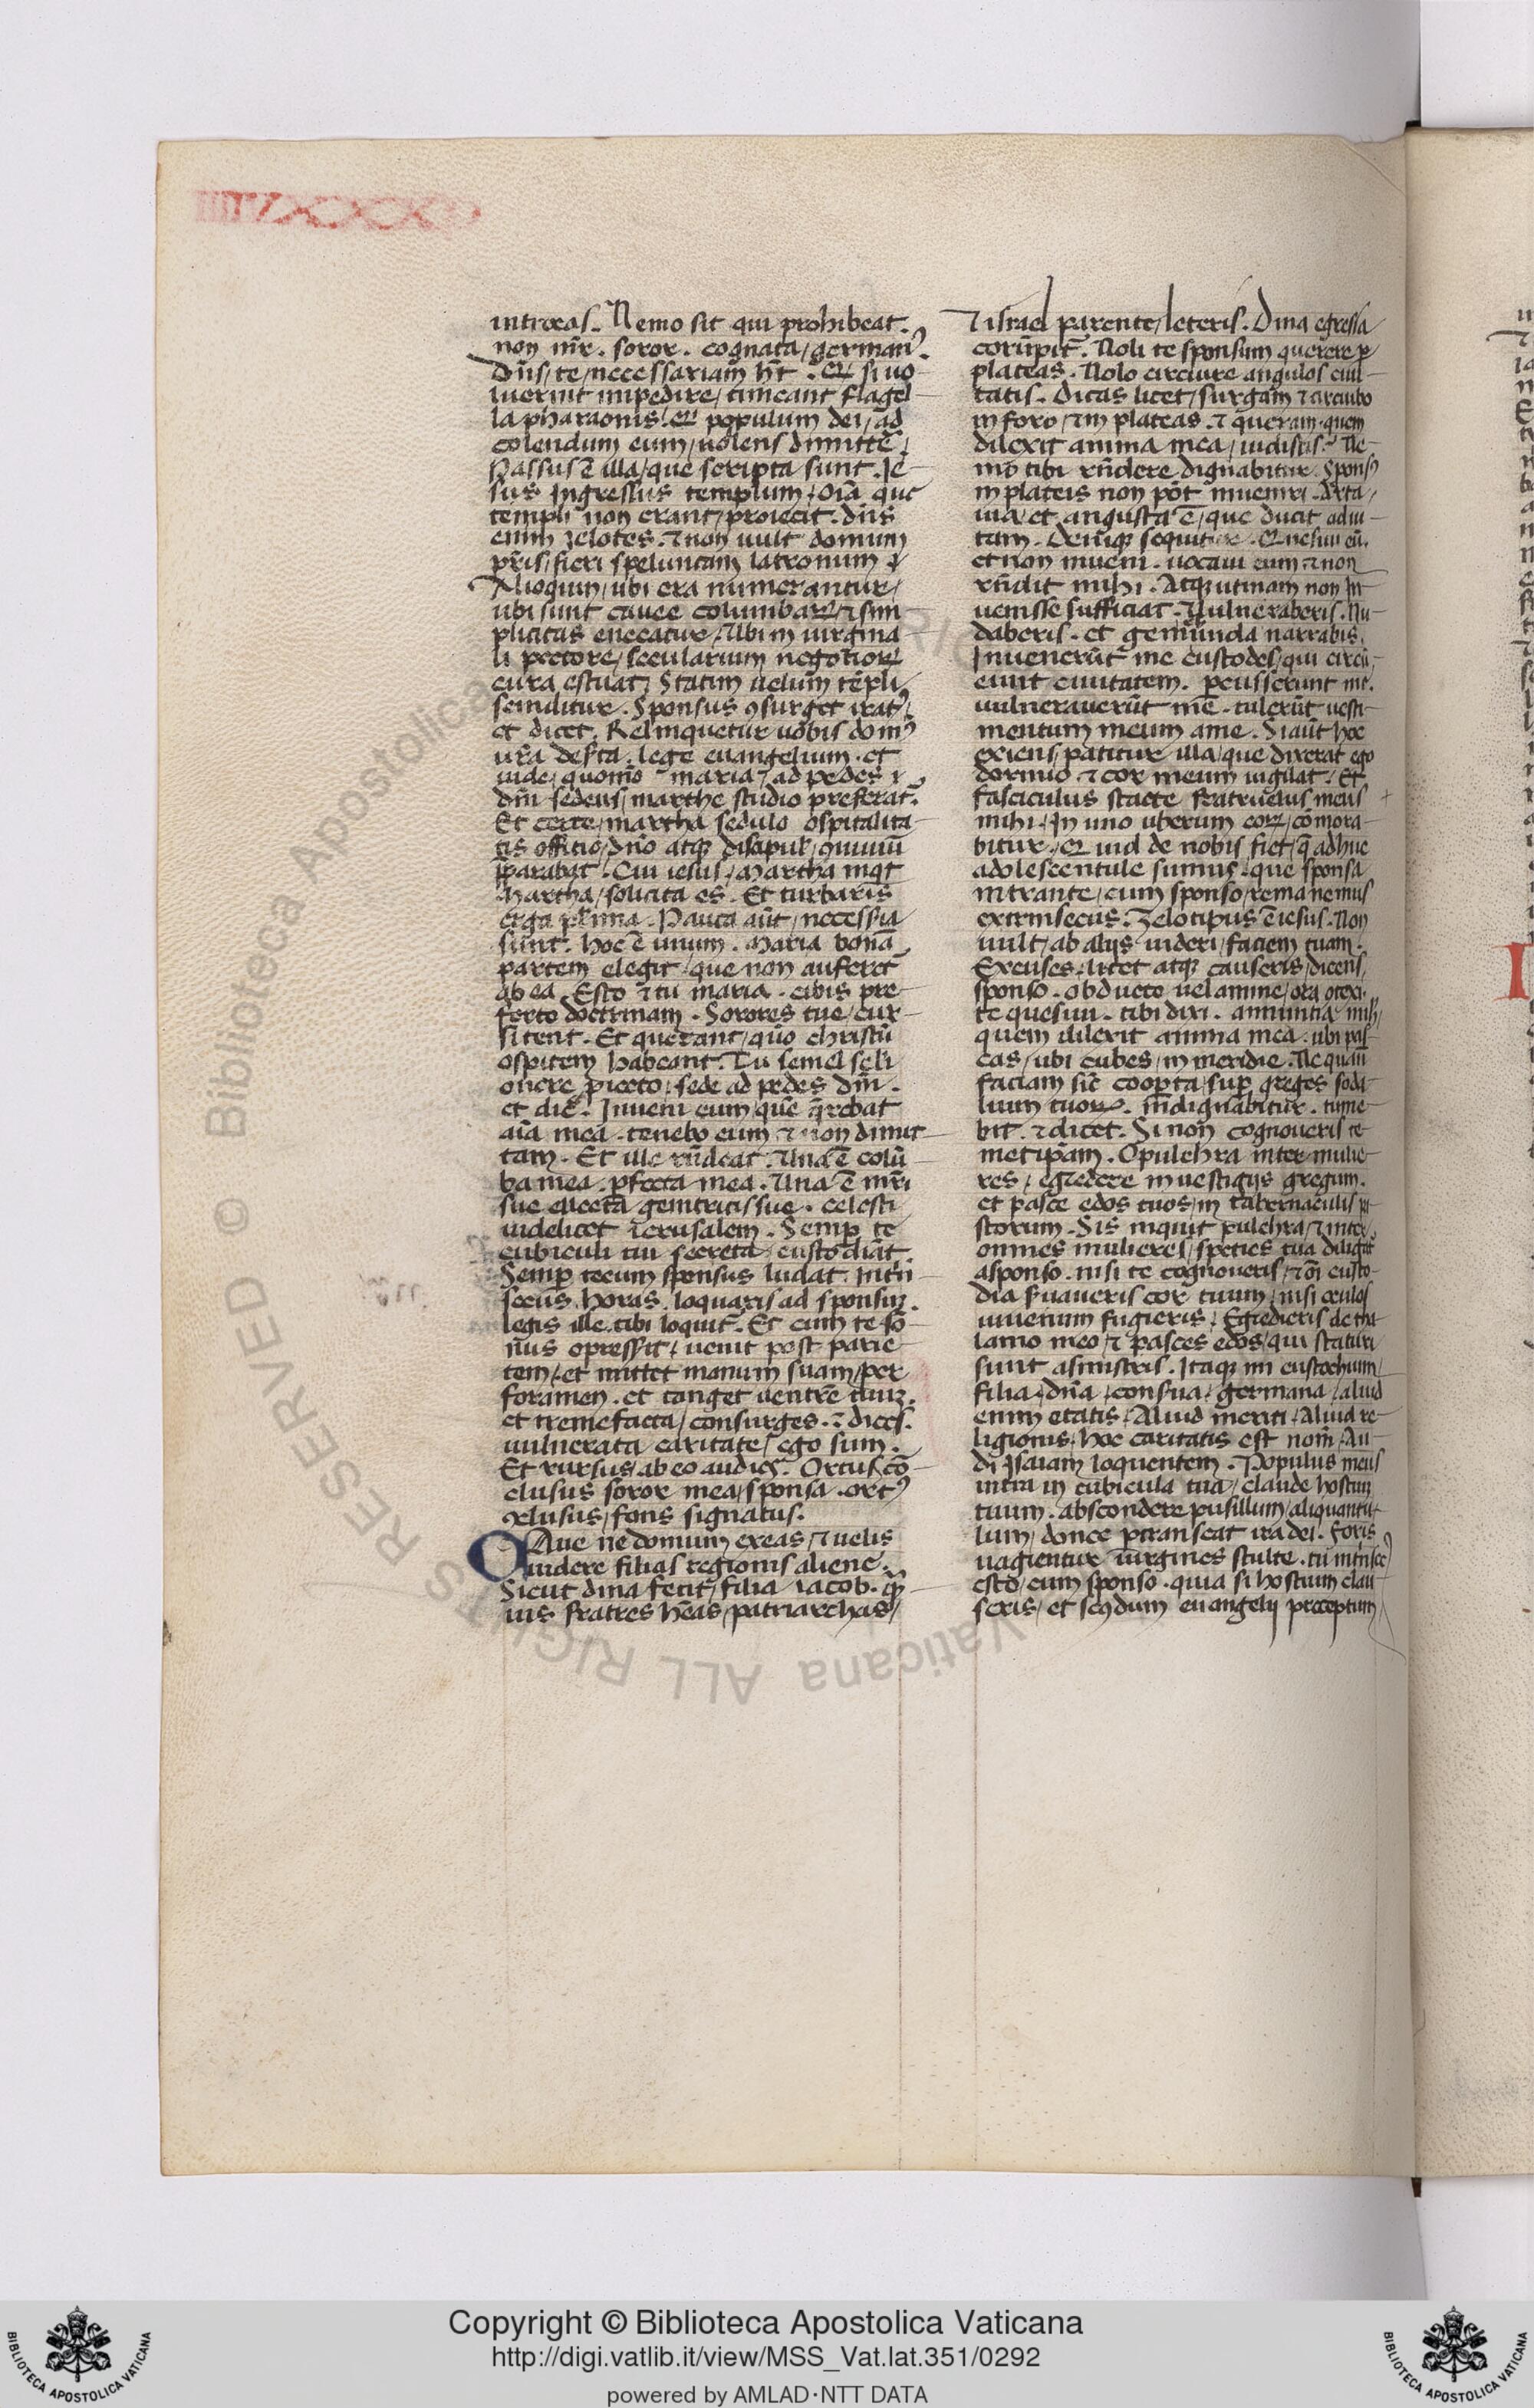 introeas. Nemo sit qui prohibeat.
non mr̄. soror. cognata / germanꝰ.
Dn̄s / te / necessariam hn̄t. Et si uo
luerint impedire / timeant flagel
la pharaonis. Et populum dei / ad
colendum eum / nolens dimitte⁊
passus ē illa / que scripta sunt. Je
sus Ingressus templum / oīa que
templi non erant / proiecit. dn̄s
enim zelotes. ⁊ non uult domum
pr̄is / fieri speluncam latronum
Alioquin / ubi era numerantur /
ubi sunt cauee columbaꝝ / ⁊ sim
plicitas enecatur / Ubi in uirgina
li pectore / secularium negotioꝝ
cura estuat / Statim uelum tēpli
scinditur. Sponsus ꝯsurget iratꝰ /
et dicet. Relinquetur uobis domꝰ
ur̄a deserta. lege euangelium. et
uide / quomō maria / ad pedes
dn̄i sedens / marthe studio preferat᷑.
Et certe / martha sedulo ospitalita
tis offitio / dn̄o atqꝫ discipul' / ꝯuiuiū
pparabat. Cui iesus / Martha inqt
Martha / solicita es. Et turbaris
erga plīma. Pauca aūt / necessia
sunt. hoc ē unum. Maria bonā
partem elegit / que non auferet᷑
ab ea. Esto ⁊ tu maria. cibis pre
ferto doctrinam. Sorores tue / cur
sitent. Et querant / quō christū
ospitem habeant. Tu semel seli
onere piecto / sede ad pedes dn̄i.
et dic. Inueni eum / quē q̄rebat
aīa mea. tenebo eum ⁊ non dimit
tam. Et ille rn̄deat. Una ē colū
ba mea. ꝑfecta mea. Una ē mr̄i
sue electa genitricis sue. celesti
uidelicet ierusalem. Semꝑ te
cubiculi tui secreta / custodiāt
Semꝑ tecum sponsus ludat. Intrī
secus. horas. loquaris ad sponsuꝫ.
legis ille tibi loquit᷑. Et cum te sō
nus opressit / ueniet post parie
tem / et mittet manum suam / per
foramen. et tanget uentrē tuuꝫ.
et tremefacta / consurges. ⁊ dices.
uulnerata caritate / ego sum.
Et rursus / ab eo audies. Ortus cō
clusus soror mea / sponsa. ortꝰ
ꝯclusus / fons signatus.
Caue ne domum exeas / ⁊ uelis
uidere filias regionis aliene.
Sicut dina fecit / filia iacob. qꝫ
uis fratres hēas / patriarchas /
⁊ israel parente / leteris. Dina egressa
corūpit᷑. Noli te sponsum querere ꝑ
plateas. Nolo circuire angulos ciui
tatis. Dicas licet / surgam ⁊ circuibo
in foro / ⁊ in plateas. ⁊ queram quem
dilexit anima mea / uidistis. Ne
mō tibi rn̄dere dignabitur. Sponsꝰ
in plateis non pōt inueniri. Arta /
uia et angusta ē / que ducit ad ui
tam. Deniqꝫ sequitur. Quesiui eū.
et non inueni. uocaui eum ⁊ non
rn̄dit mihi. Atqꝫ utinam non In
uenisse sufficiat. Uulneraberis. Nu
daberis. et gemūnda narrabis.
Inuenerūt me custodes / qui circū
eunt ciuitatem. pcusserunt me.
uulnerauerūt me. tulerūt uesti
mentum meum a me. Si aūt hoc
exiens / patitur illa / que dixerat ego
dormio ⁊ cor meum uigilat. Et
fasciculus stacte fratruelus meus
mihi / In uno uberum eoꝝ / comora
bitur. Quid de nobis fiet / q̄ adhuc
adolescentule sumus. que sponsa
intrante / cum sponso / remanemus
extrinsecus. Zelotipus ē iesus. Non
uult / ab alijs uideri / faciem tuam.
Excuses licet atqꝫ causeris / dicens /
sponso. obducto uelamine / ora
te quesiui. tibi dixi. annuntia mihi /
quem dilexit anima mea. ubi pas
cas / ubi cubes / in meridie. Ne quādo
faciam sic coopta / suꝑ greges soda
lium tuoꝝ. indignabitur. tume
bit. ⁊ dicet. Si non cognoueris te
metipsam. O pulchra inter mulie
res / egredere in uestigijs gregum.
et pasce edos tuos / in tabernaculis pa
storum. Sis inquit pulchra / ⁊ inter
omnes mulieres / speties tua diligat᷑
a sponso. nisi te cognoueris / ⁊ oī custo
dia seruaueris cor tuum / nisi oculos
iuuenum fugieris / Egredieris de tha
lamo meo / ⁊ pasces edos / qui staturi
sunt a sinistris. Itaqꝫ mi eustochium /
filia / dn̄a / conserua / germana / aliud
enim etatis / Aliud meriti / Aliud re
ligionis / hoc caritatis est nom̄. Au
di Isaiam loquentem. Populus meus
intra in cubicula tua / claude hostium
tuum. abscondere pusillum / aliquantu
lum / donec ptranseat ira dei. Foris
uagientur uirgines stulte. tu intrisecꝰ
esto / cum sponso. quia si hostium clau
seris / et scꝯdum euangelij preceptum
Copyright © Biblioteca Apostolica Vaticana
http://digi.vatlib.it/view/MSS_Vat.lat.351/0292
powered by AMLAD·NTT DATA
BIBLIOTECA APOSTOLICA VATICANA
BIBLIOTECA APOSTOLICA VATICANA